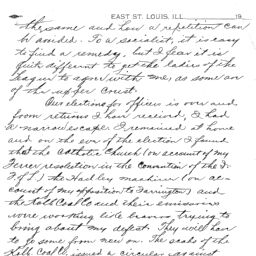 EAST ST. LOUIS, ILL. 19
the same and how a repetition can
be avoided. To a socialist, it is easy
to find a remedy, but I fear it is
quite different to get the ladies of the
league to agree with me, as some are
of the upper crust.
Our elections for officers is over and
from returns I have received, I had
a narrow escape. I remained at home
and on the eve of the election I found
that the Catholic Church (on account of my
Ferrer resolution in the Convention of the I.
F. of L.) the Hadley machine (on ac-
count of my opposition to Farrington) and
the Kolb Coal Co and their emissaries
were working like beavers trying to
bring about my defeat. They will have
to go some from now on. The scabs of the
Kolb Coal Co. issued a circular against